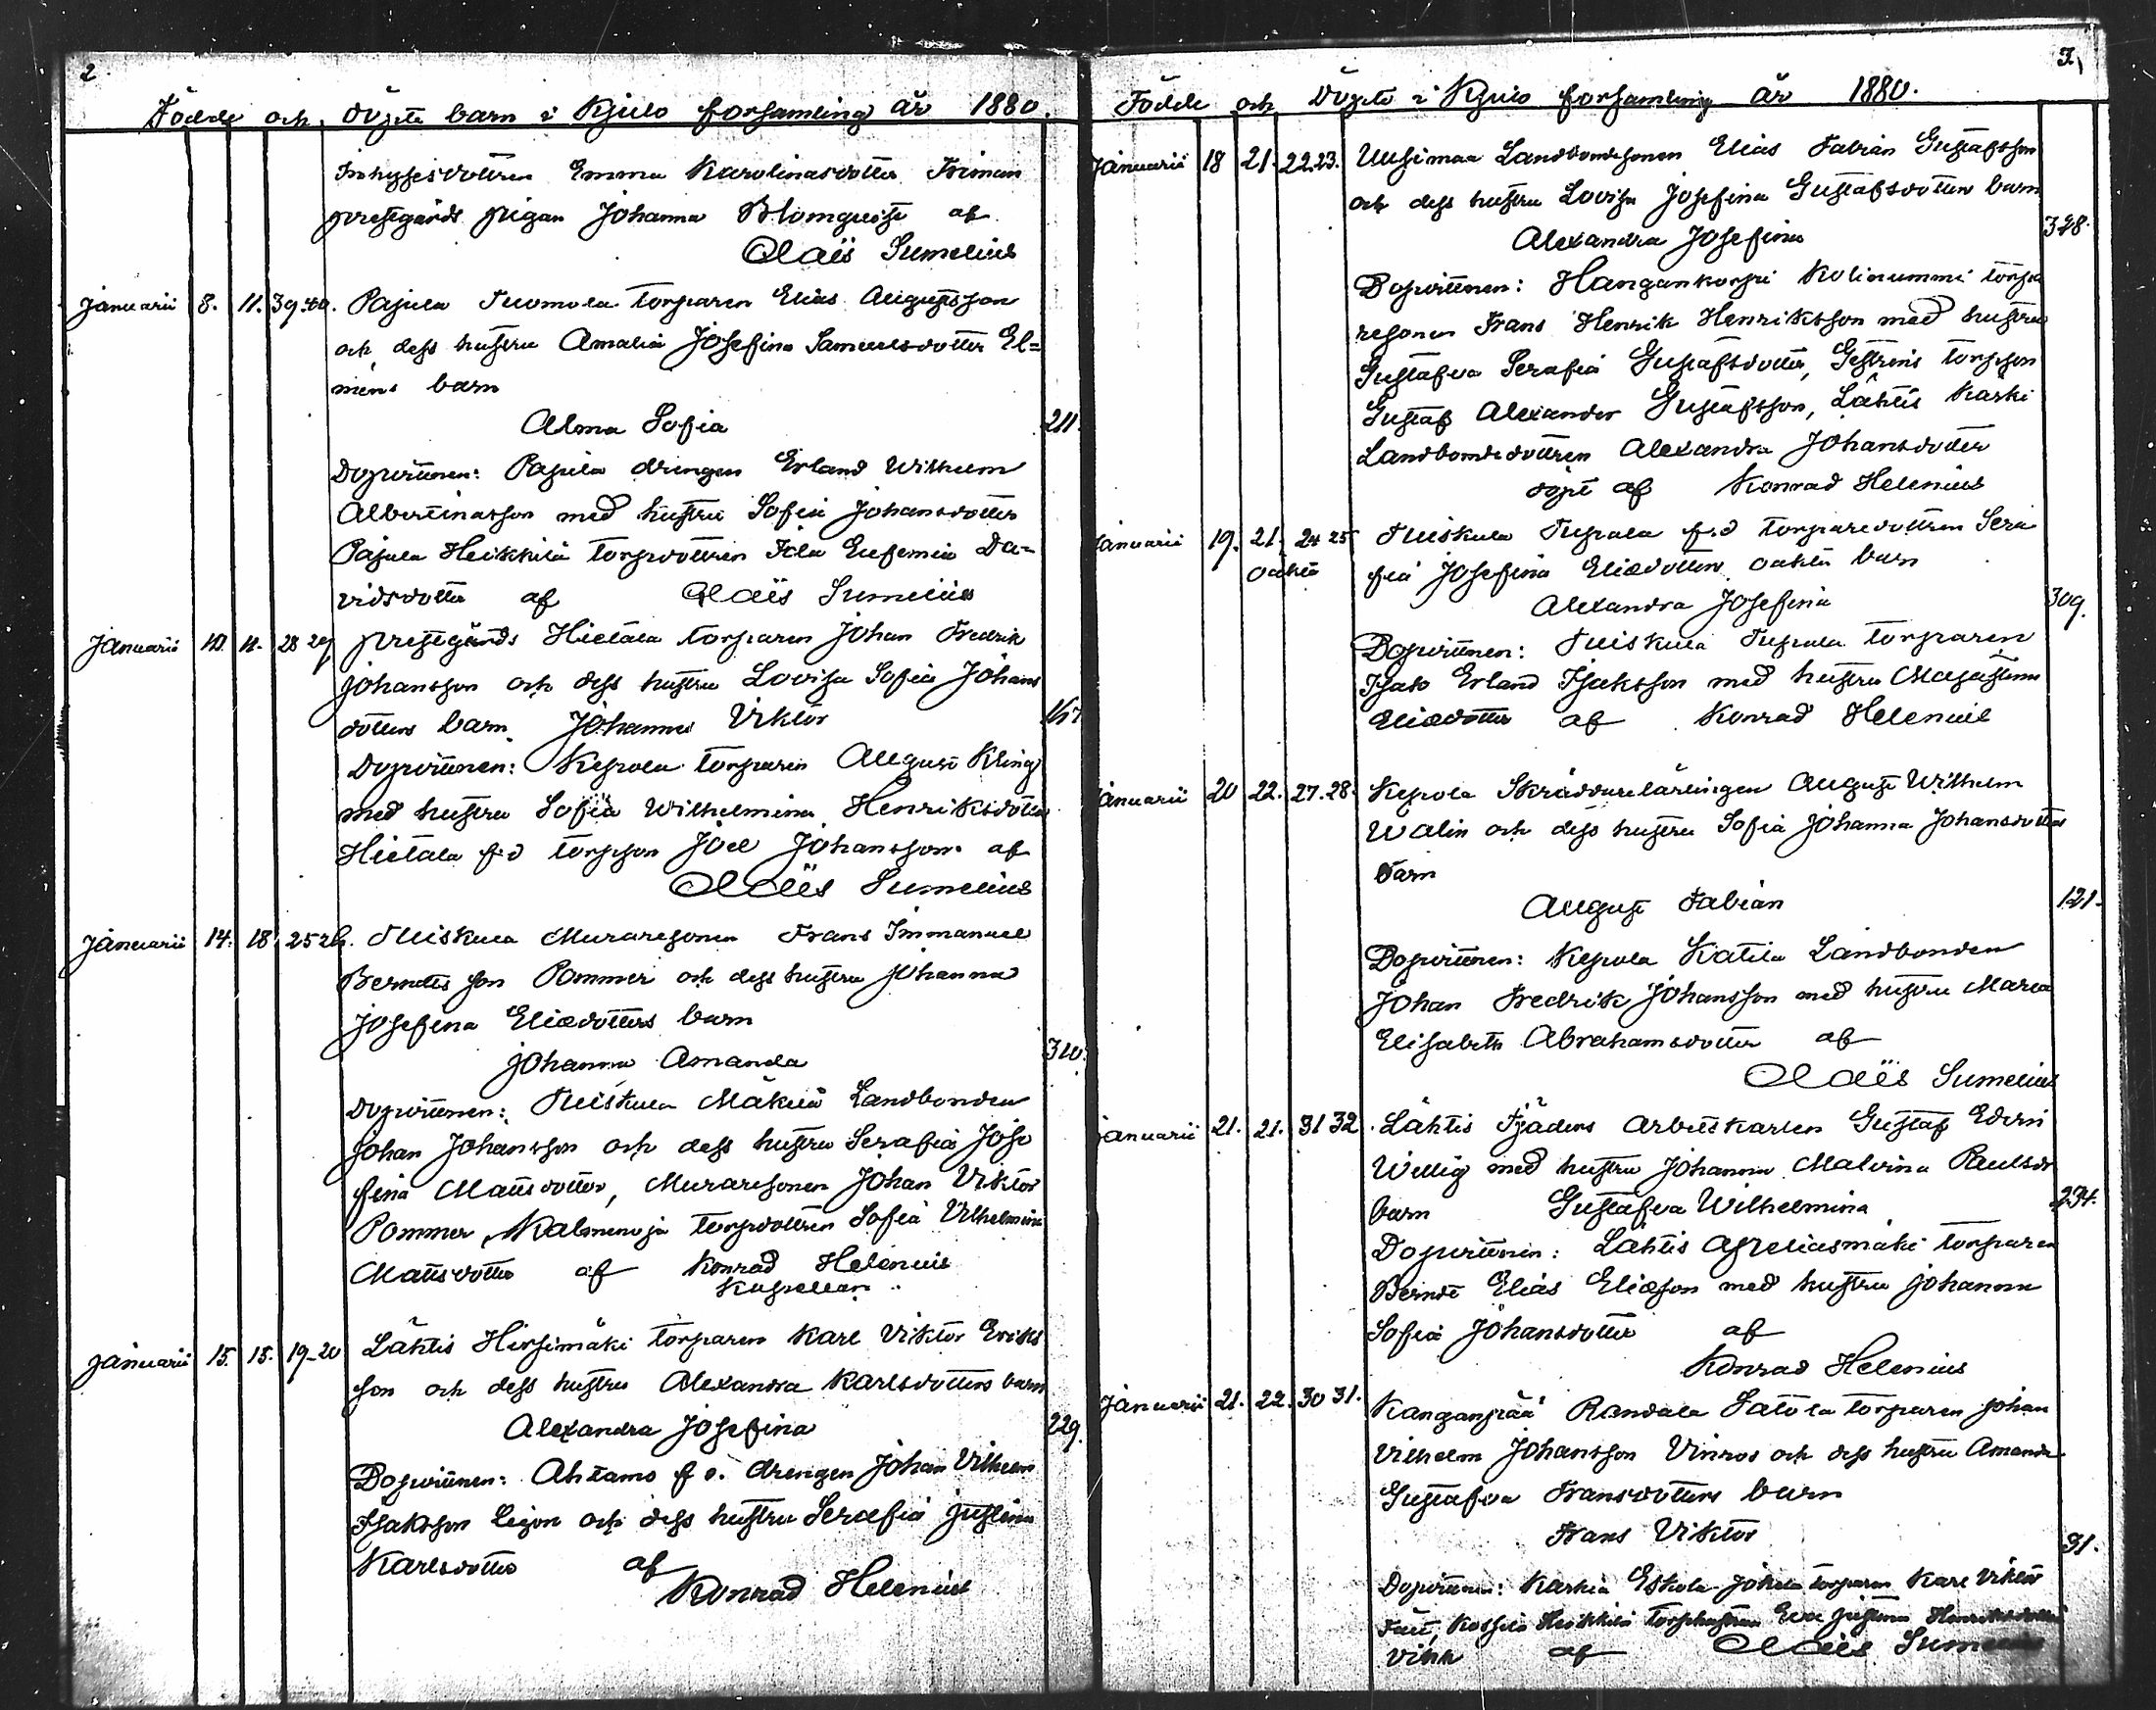 2
Födde och döpte barn i Kjulo forsamling år 1880.
Inhysesdottren Emma Karolinasdotter Friman
prestgårds pigan Johanna Blomquist af
Claës Sumelius
Januarii 8. 11. 39.40. Pajula Tuomola torparen Elias Augustsson
och dess hustru Amalia Josefina Samuelsdotter El=
mens barn
Alma Sofia 211.
Dopvittnen: Pajula drengen Erland Wilhelm
Albertinasson med hustru Sofia Johansdotter
Pajula Heikkilä torpdottren Ida Eufemia Da=
vidsdotter af Claës Sumelius
Januarii 10. 11. 28 29 prestgårds Hietala torparen Johan Fredrik
Johansson och dess hustru Lovisa Sofia Johans
dotters barn Johannes Viktor
Dopvittnen: Kepola torparen August Kling
med hustru Sofia Wilhelmina Henriksdotter
Hietala f.d torpson Joel Johansson af
Claës Sumelius
Januarii 14. 18 25 26. Tuiskula Muraresonen Frans Immanuel
Berndts son Pommer och dess hustru Johanna
Josefina Eliædotters barn
Johanna Amanda 310.
Dopvittnen: Tuiskula Mäkilä Landbonden
Johan Johansson och dess hustru Serafia Jose
fina Mattsdotter, Muraresonen Johan Viktor
Pommer, Kalmenoja torpdottren Sofia Vilhelmina
Mattsdotter af Konrad Helenius
Kapellan
Januarii 15. 15. 19-20 Lähtis Hirsimäki torparen Karl Viktor Eriks
son och dess hustru Alexandra Karlsdotters barn
Alexandra Josefina 229.
Dopvittnen: Ahtamo f.d. drengen Johan Vilhelm
Isaksson Leijon och dess hustru Serafia Justina
Karlsdotter af
Konrad Helenius
3,
Födde och Döpte i Kjulo forsamling år 1880.
Januarii 18 21. 22.23. Uusimaa Landbondesonen Elias Fabian Gustafsson
och dess hustru Lovisa Josefina Gustafsdotters barn
Alexandra Josefina 328.
Dopvittnen: Hangankorpi Kolinummi torpa
resonen Frans Henrik Henriksson med hustru
Gustafva Serafia Gustafsdotter, torpson
Gustaf Alexander Gustafsson, Lähtis Kärki
Landbondedottren Alexandra Johansdotter
döpt af Konrad Helenius
Januarii 19. 21. 24 25 Tuiskula Tupala f.d torparedottren Sera
oäkta fia Josefina Eliædotters oäkta barn
Alexandra Josefina 309.
Dopvittnen: Tuiskula Tupala torparen
Isak Erland Isaksson med hustru
Eliædotter af Konrad Helenius
Januarii 20 22. 27.28. Kepola Skräddarelärlingen August Wilhelm
Walin och dess hustru Sofia Johanna Johansdotters
barn
August Fabian 121.
Dopvittnen: Kepola Katila Landbonden
Johan Fredrik Johansson med hustru Maria
Elisabeth Abrahamsdotter af
Claës Sumelius
Januarii 21. 21. 31 32. Lähtis Fjäders arbetskarlen Gustaf Edvin
Willig med hustru Johanna Malvina Paulsdr
barn Gustafva Wilhelmina 234.
Dopvittnen: Lähtis Apeliasmäki torparen
Berndt Elias Eliæson med hustru Johanna
Sofia Johansdotter af
Konrad Helenius
Januarii 21. 22. 30 31. Kanganpää Randala Satola torparen Johan
Vilhelm Johansson Vinros och dess hustru Amanda
Gustafva Fransdotters barn
Frans Viktor 31.
Dopvittnen: Karhia Eskola Jokela torparen Karl Viktor
Heikkilä torphustrun Eva Justina Henriksdotter
af Claës Sumelius